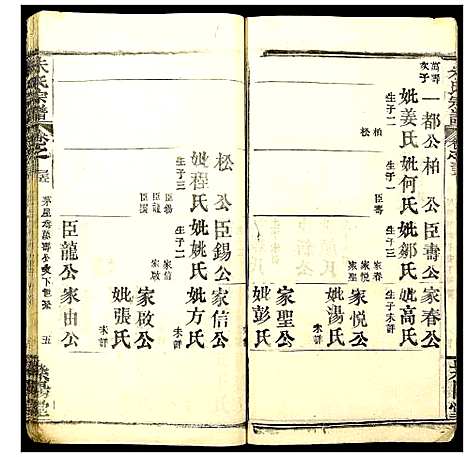 朱氏宗譜
富壽
次子
一都公
妣姜氏
生子二
柏
松
柏公
妣何氏
生子一
臣壽
臣壽公
妣鄒氏
生子三
家春
家悅
家聖
家春公
妣高氏
生子未詳
家悅公
妣湯氏
未詳
家聖公
妣彭氏
未詳
松公
妣程氏
生子三
臣錫
臣龍
臣錫公
妣姚氏
生子二
家信
家啟
家信公
妣方氏
未詳
家啟公
妣張氏
未詳
臣龍公
家由公
朱氏宗譜
卷之
公次下世系
五